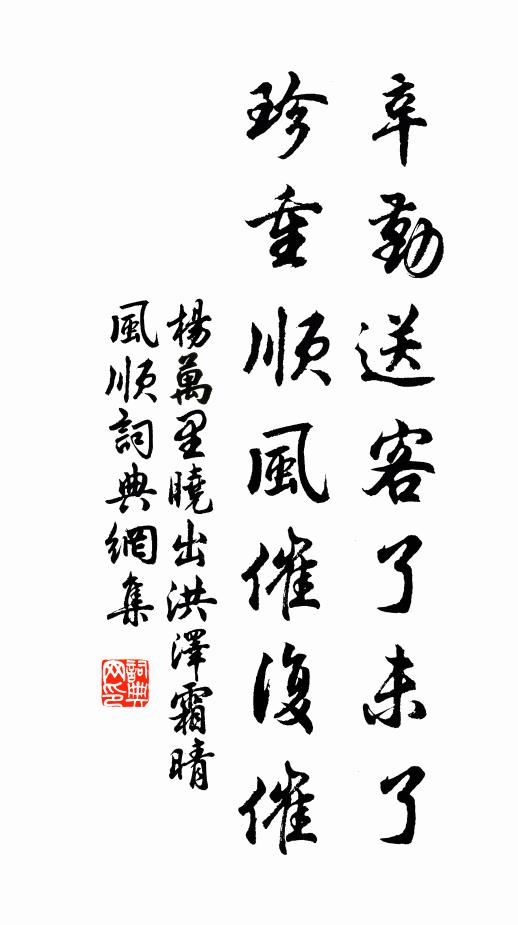 辛勤送客了未了
珍重順風催復催
楊萬里曉出洪澤霜晴
風順詞典網集
詞典网印